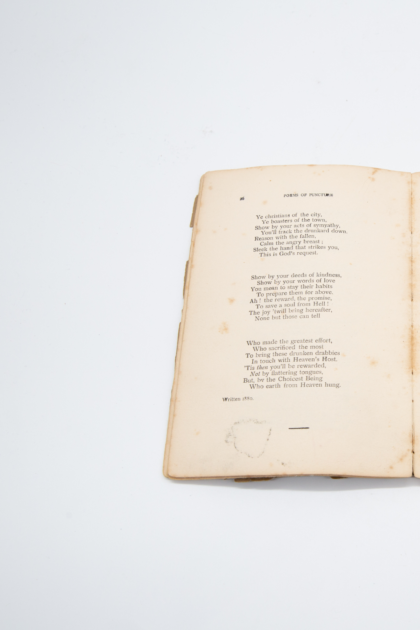 Ye christians of the city,
Ye boasters of the town,
Show by your acts of sympathy,
You'll track the drunkard down.
Reason with the fallen,
Calm the angry breast;
Seek the hand that strikes you,
This is God's request.
Show by your deeds of kindness,
Show by your words of love
You mean to stay their habits
To prepare them for above.
Ah! the reward, the promise,
To save a soul from Hell!
The joy 'twill bring hereafter,
None but these can tell
Who made the greatest effort,
Who sacrificed the most
To bring these drunken
In touch with Heaven's Host.
'Tis then you'll be rewarded,
Not by flattering tongues,
But, by the Choicest Being
Who earth from Heaven hung.
Written